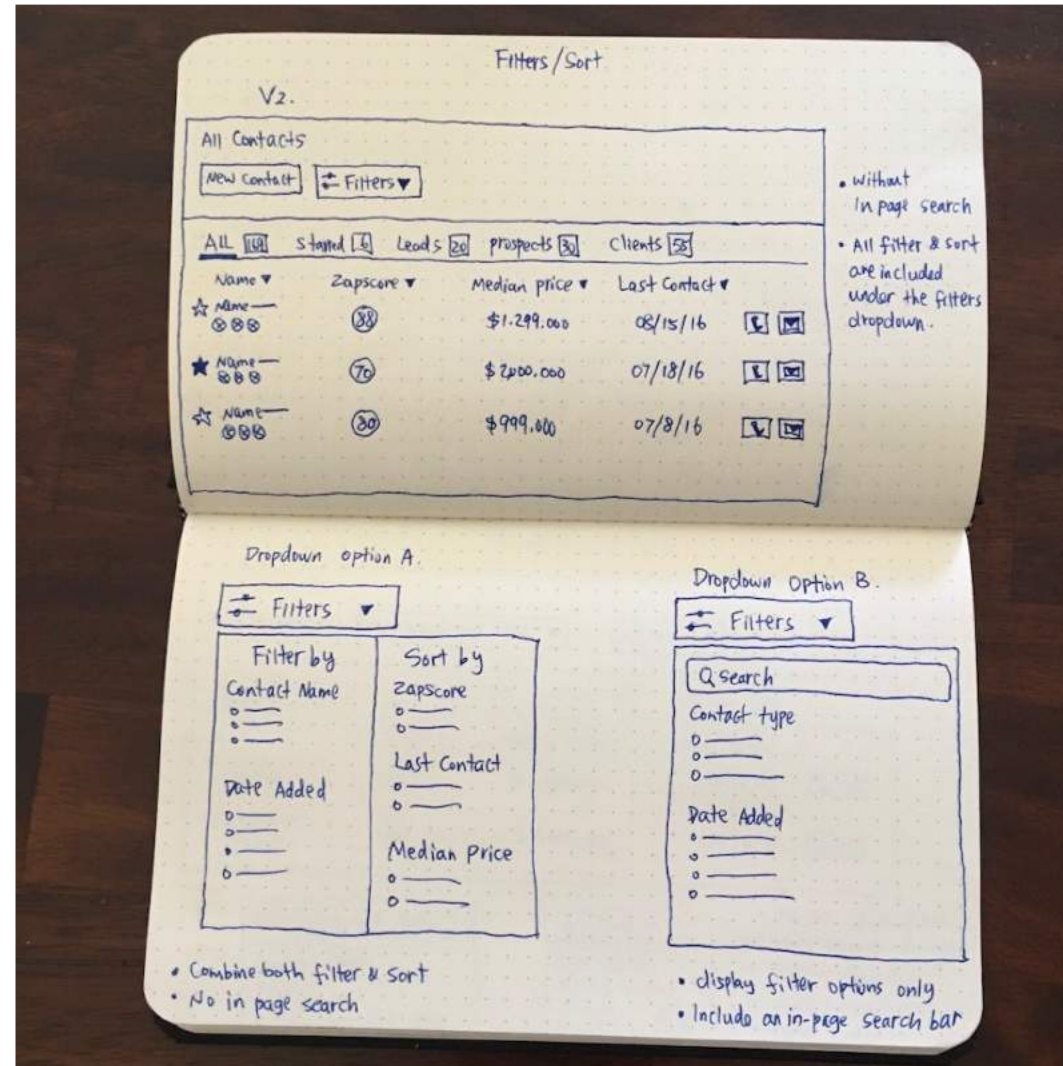 Filters/Sort
V2.
All Contacts
New Contact Filters
All Starred 6 Leads 20 prospects 30 Clients 55
Name Zapscore Median price Last Contact
Name
88 $1.299.000 08/15/16
Name
70 07/18/16
Name
80 $999.000 07/8/16
• without
In page search
• All filter & sort
are included
under the filters
dropdown.
Dropdown option A.
Filters
Filter by
Contact Name
Date Added
Sort by
Zapscore
Last Contact
Median Price
• Combine both filter & sort
• No in page search
Dropdown Option B.
Filters
Search
Contact type
Date Added
• display filter options only
• Include an in-page search bar